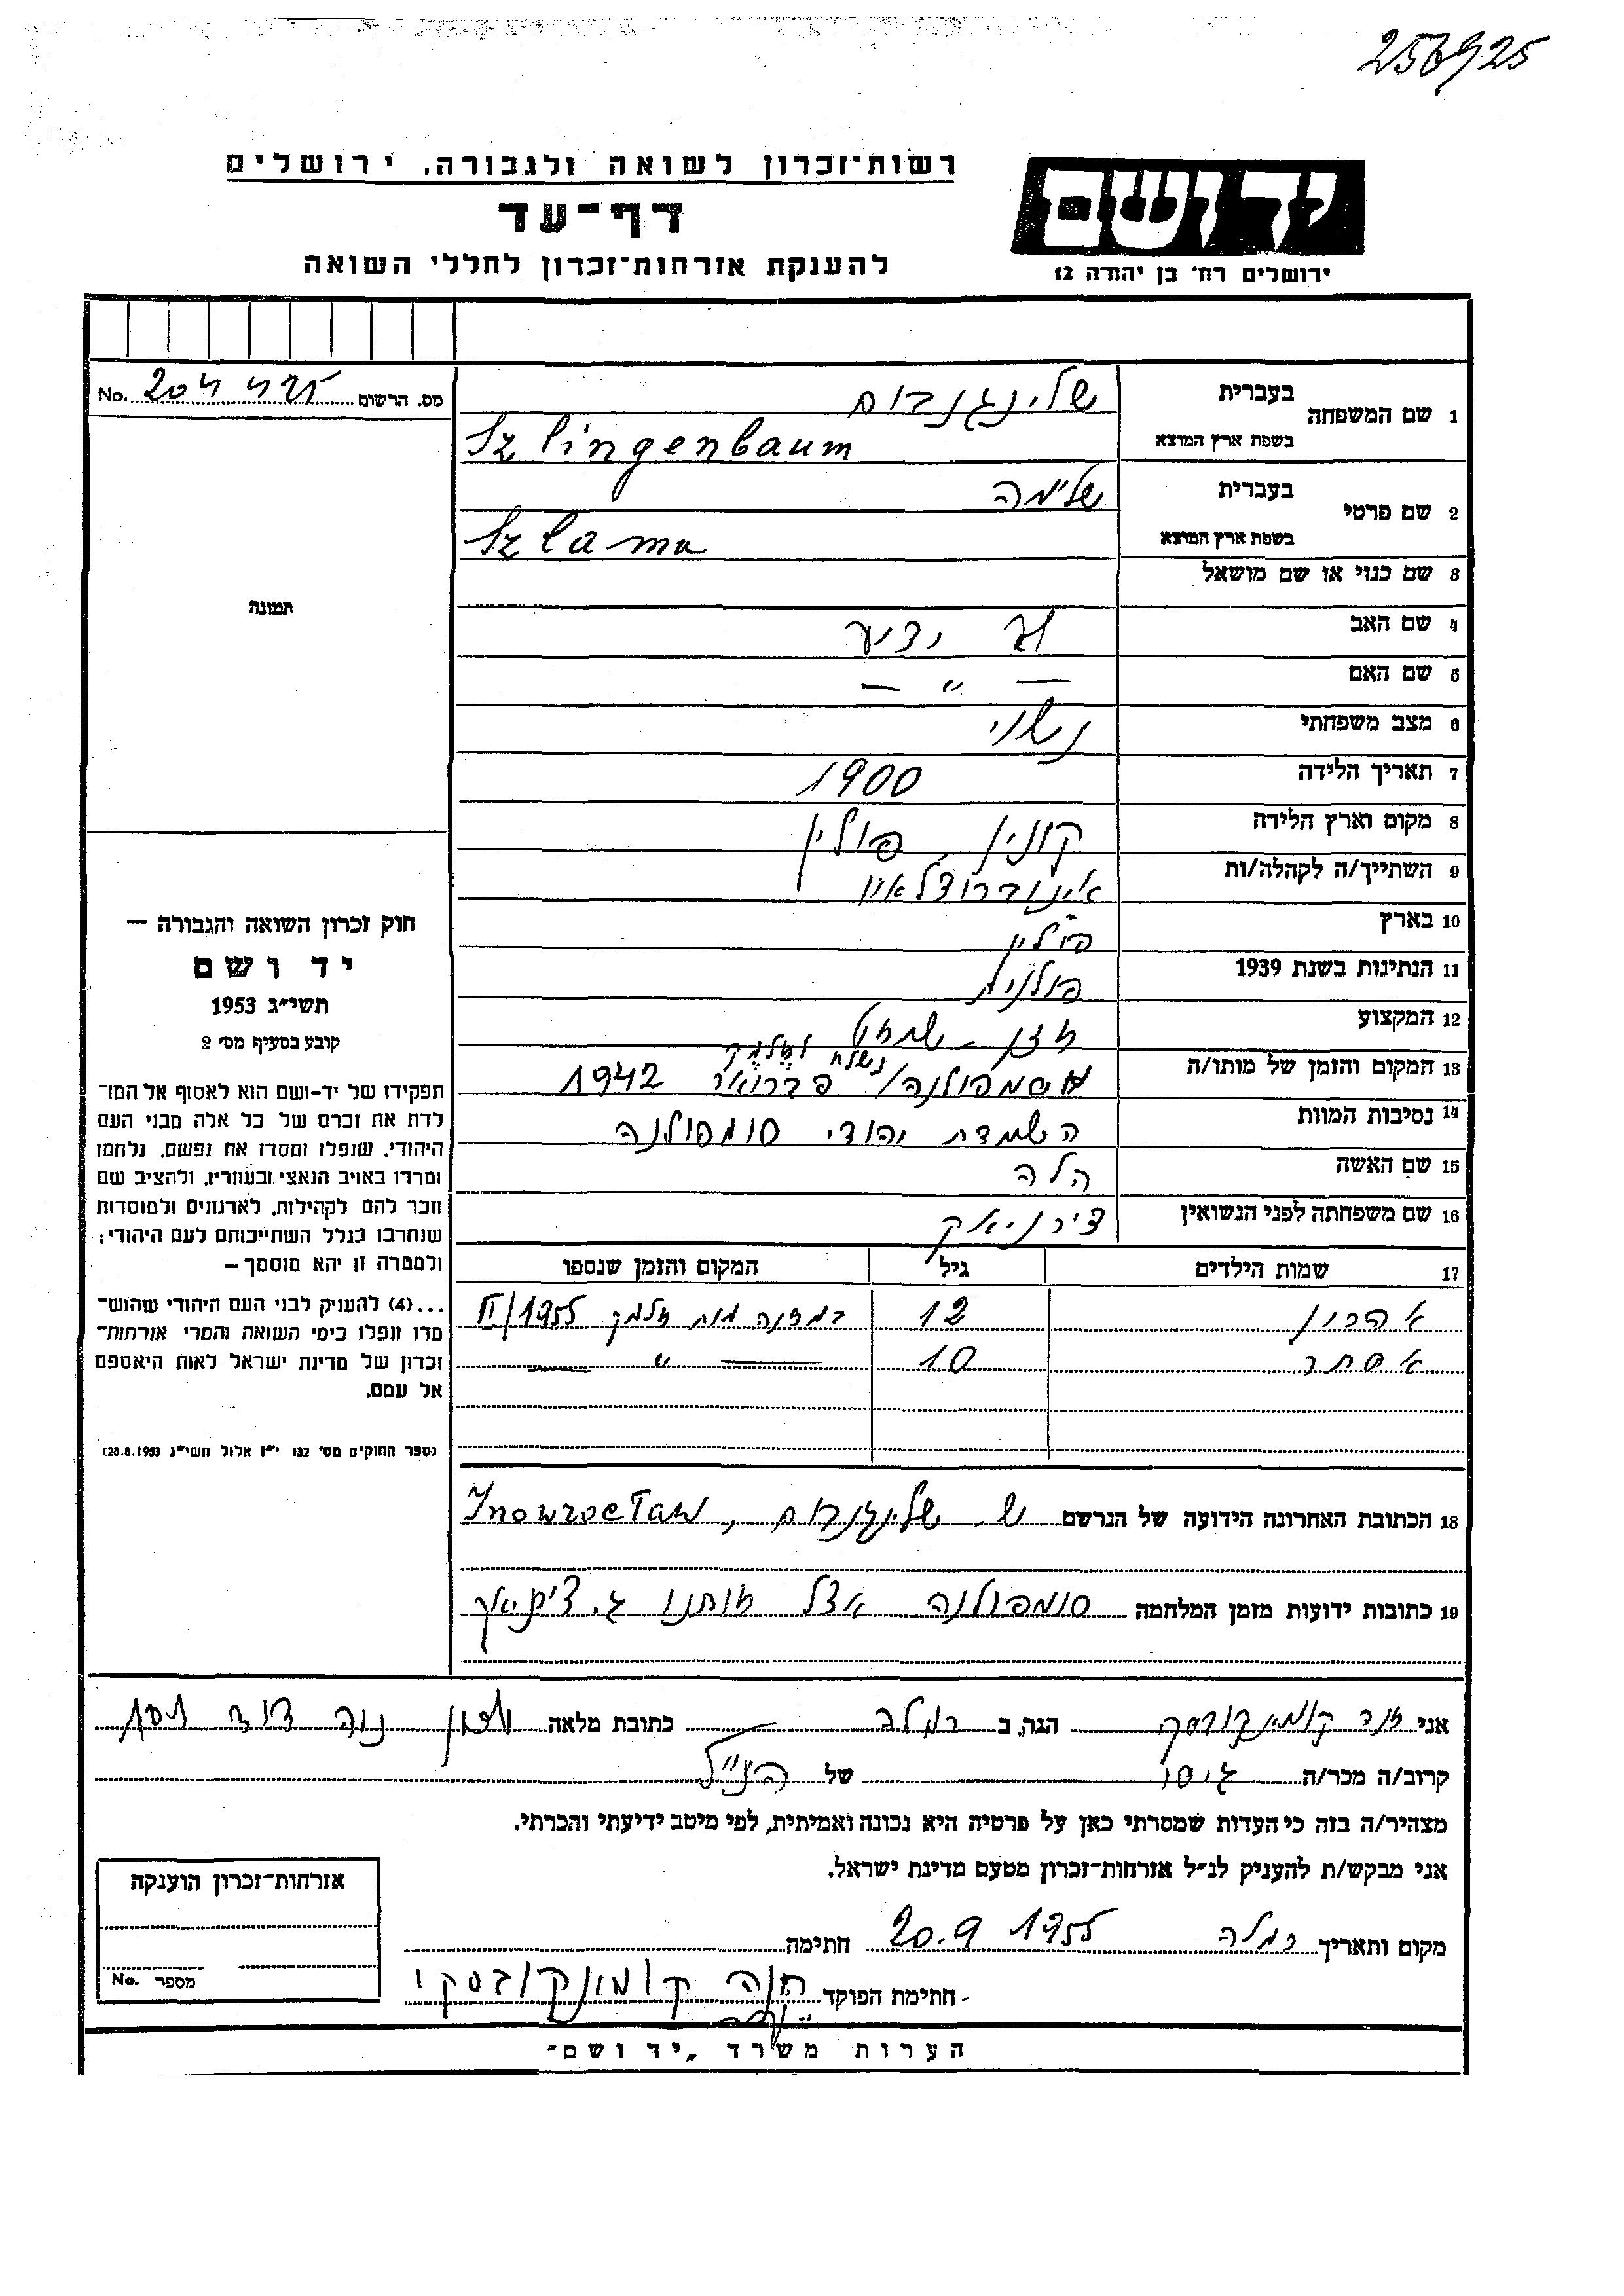 256925
רשות־זכרון לשואה ולגבורה. ירושלים
דף־עד
להענקת אזרחות־זכרון לחללי השואה
יד ושם
ירושלים רח' בן יהודה 12
מס. הרשום No.
תמונה
1 שם המשפחה בעברית שלינגנבוים
בשפת ארץ המוצא Szlingenbaum
2 שם פרטי בעברית שלימה
בשפת ארץ המוצא Szlama
3 שם כנוי או שם מושאל
4 שם האב לא ידוע
5 שם האם — " —
6 מצב משפחתי נשוי
7 תאריך הלידה 1900
8 מקום וארץ הלידה קונין פולין
9 השתייך/ה לקהלה/ות אינוברוצלאוו
10 בארץ פולין
11 הנתינות בשנת 1939 פולנית
12 המקצוע חזן
13 המקום והזמן של מותו/ה נשלח לחלמנו סמפולנה/ פברואר 1942
14 נסיבות המוות השמדת יהודי סומפולנה
15 שם האשה הלה
16 שם משפחתה לפני הנשואין צירניאק
17 שמות הילדים גיל המקום והזמן שנספו
אהרון 12 במחנה מות חלמנו 1955/II
אסתר 10 — " —
18 הכתובת האחרונה הידועה של הנרשם ש. שלינגנבוים, Inowrocław
19 כתובות ידועות מזמן המלחמה סומפולנה אצל חותנו ג. צירניאק
חוק זכרון השואה והגבורה —
יד ושם
תשי״ג 1953
קובע בסעיף מס׳ 2
תפקידו של יד־ושם הוא לאסוף אל המו־
לדת את זכרם של כל אלה מבני העם
היהודי. שנפלו ומסרו את נפשם, נלחמו
ומרדו באויב הנאצי ובעוזריו, ולהציב שם
וזכר להם לקהילות, לארגונים ולמוסדות
שנחרבו בגלל השתייכותם לעם היהודי;
ולמטרה זו יהא מוסמך —
...(4) להעניק לבני העם היהודי שהוש־
מדו ונפלו בימי השואה והמרי אזרחות־
זכרון של מדינת ישראל לאות היאספם
אל עמם.
(ספר החוקים מס׳ 132 י״ז אלול תשי״ג 28.8.1953)
אני חנה קומינקובסקי הגר, ב רמלה כתובת מלאה שכון נוה דוד
קרוב/ה מכר/ה גיסו של הנ״ל
מצהיר/ה בזה כי העדות שמסרתי כאן על פרטיה היא נכונה ואמיתית, לפי מיטב ידיעתי והכרתי.
אני מבקש/ת להעניק לנ״ל אזרחות־זכרון מטעם מדינת ישראל.
מקום ותאריך רמלה 20.9 1955 חתימה
חתימת הפוקד חנה קומינקובסקי
אזרחות־זכרון הוענקה
מספר No.
הערות משרד „יד ושם״